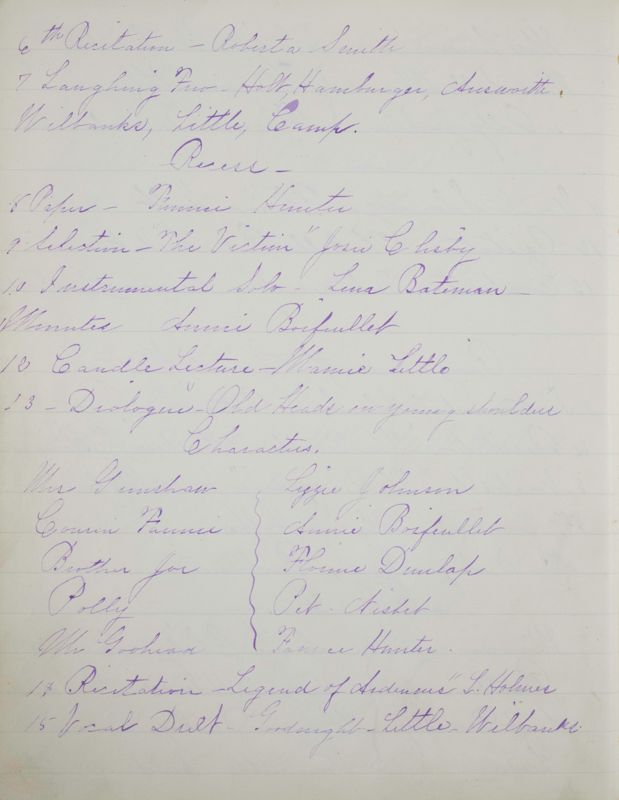 6th Recitation - Roberta Smith
7 Laughing Trio - Holt, Hamburger, Answorth
Wilbanks, Little, Camp.
Recess -
8 Paper - Fannie Hunter
9 Selection - "The Victim" Josie Clisby
10 Instrumental Solo - Lena Bateman
Minutes Annie Boifeullet
12 Candle Lecture - Mamie Little
13 - Diologue - Old Heads on young shoulders
Characters.
Mrs Gumshaw Lizzie Johnson
Cousin Fannie Annie Boifeullet
Brother Joe Florine Dunlap
Polly Pet. Nisbet
Mr Fannie Hunter.
Recitation - Legend of L. Holmes
15 Vocal Duet - Goodnight - Little - Wilbanks